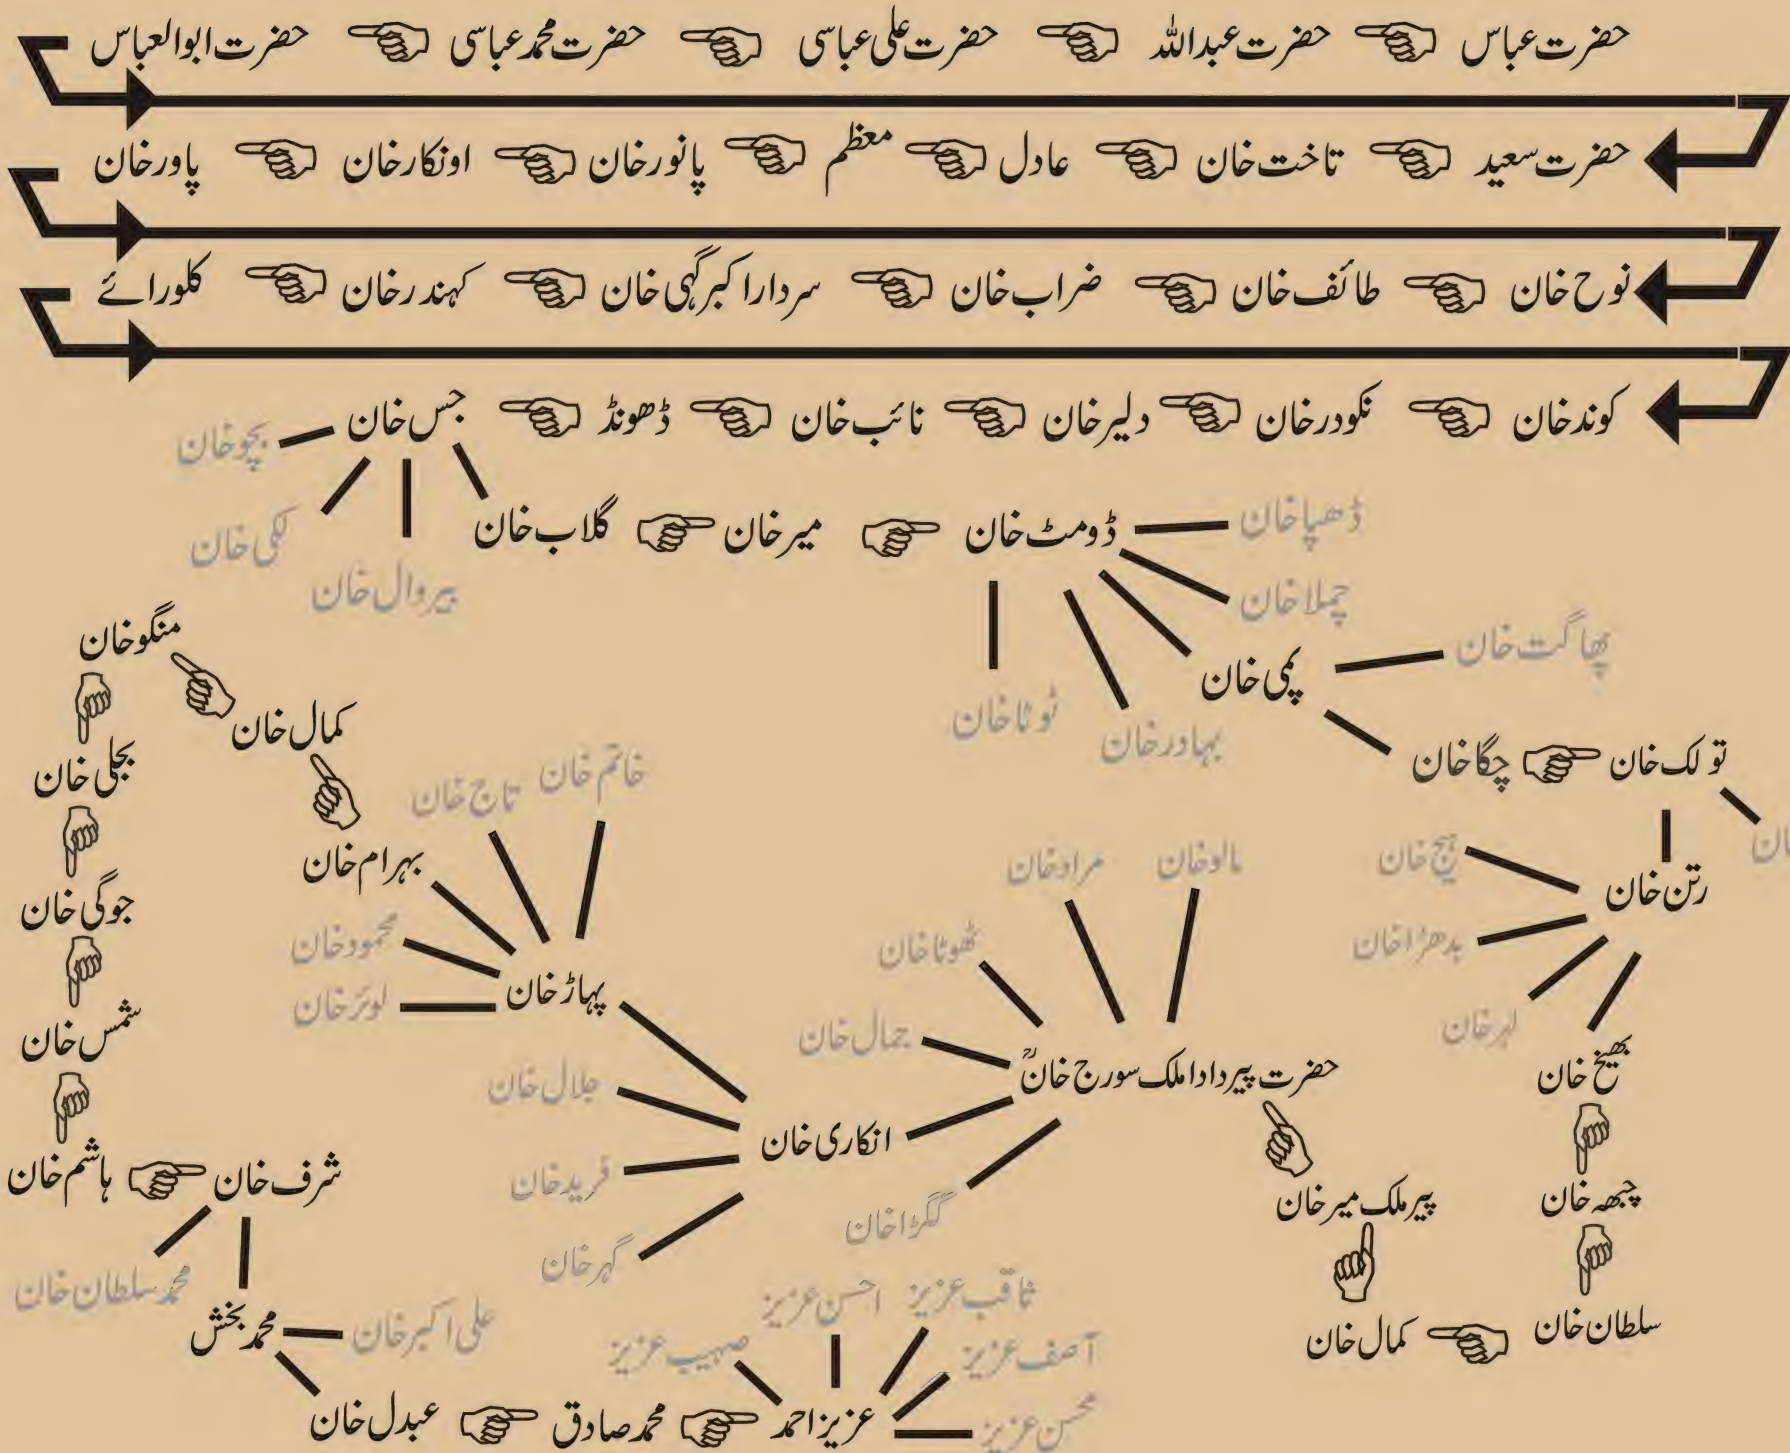 حضرت عباس حضرت عبداللہ حضرت علی عباسی حضرت محمد عباسی حضرت ابوالعباس
حضرت سعید تاخت خان عادل معظم پانور خان اونکار خان پاور خان
نوح خان طائف خان ضراب خان سردار اکبر گہی خان کہندر خان کلورائے
کوند خان نکودر خان دلیر خان نائب خان ڈھونڈ جس خان
بچو خان
لکمی خان
بیروال خان
گلاب خان میر خان ڈومٹ خان
ڈھپا خان
چملا خان
پمی خان
بہادر خان
ٹوٹا خان
پھاگت خان
چگا خان تولک خان
رتن خان
بیج خان
بدھڑا خان
لہر خان
بھیخ خان
چبھہ خان
سلطان خان
کمال خان
پیر ملک میر خان
حضرت پیر دادا ملک سورج خانؒ
مالو خان
مراد خان
ٹھوٹا خان
جمال خان
گگڑا خان
انکاری خان
جلال خان
فرید خان
گہر خان
پہاڑ خان
خاتم خان
تاج خان
محمود خان
لوئر خان
بہرام خان
کمال خان
منگو خان
بجلی خان
جوگی خان
شمس خان
ہاشم خان شرف خان
محمد سلطان خان
محمد بخش
علی اکبر خان
عبدل خان محمد صادق عزیز احمد
صہیب عزیز
احسن عزیز
ثاقب عزیز
آصف عزیز
محسن عزیز